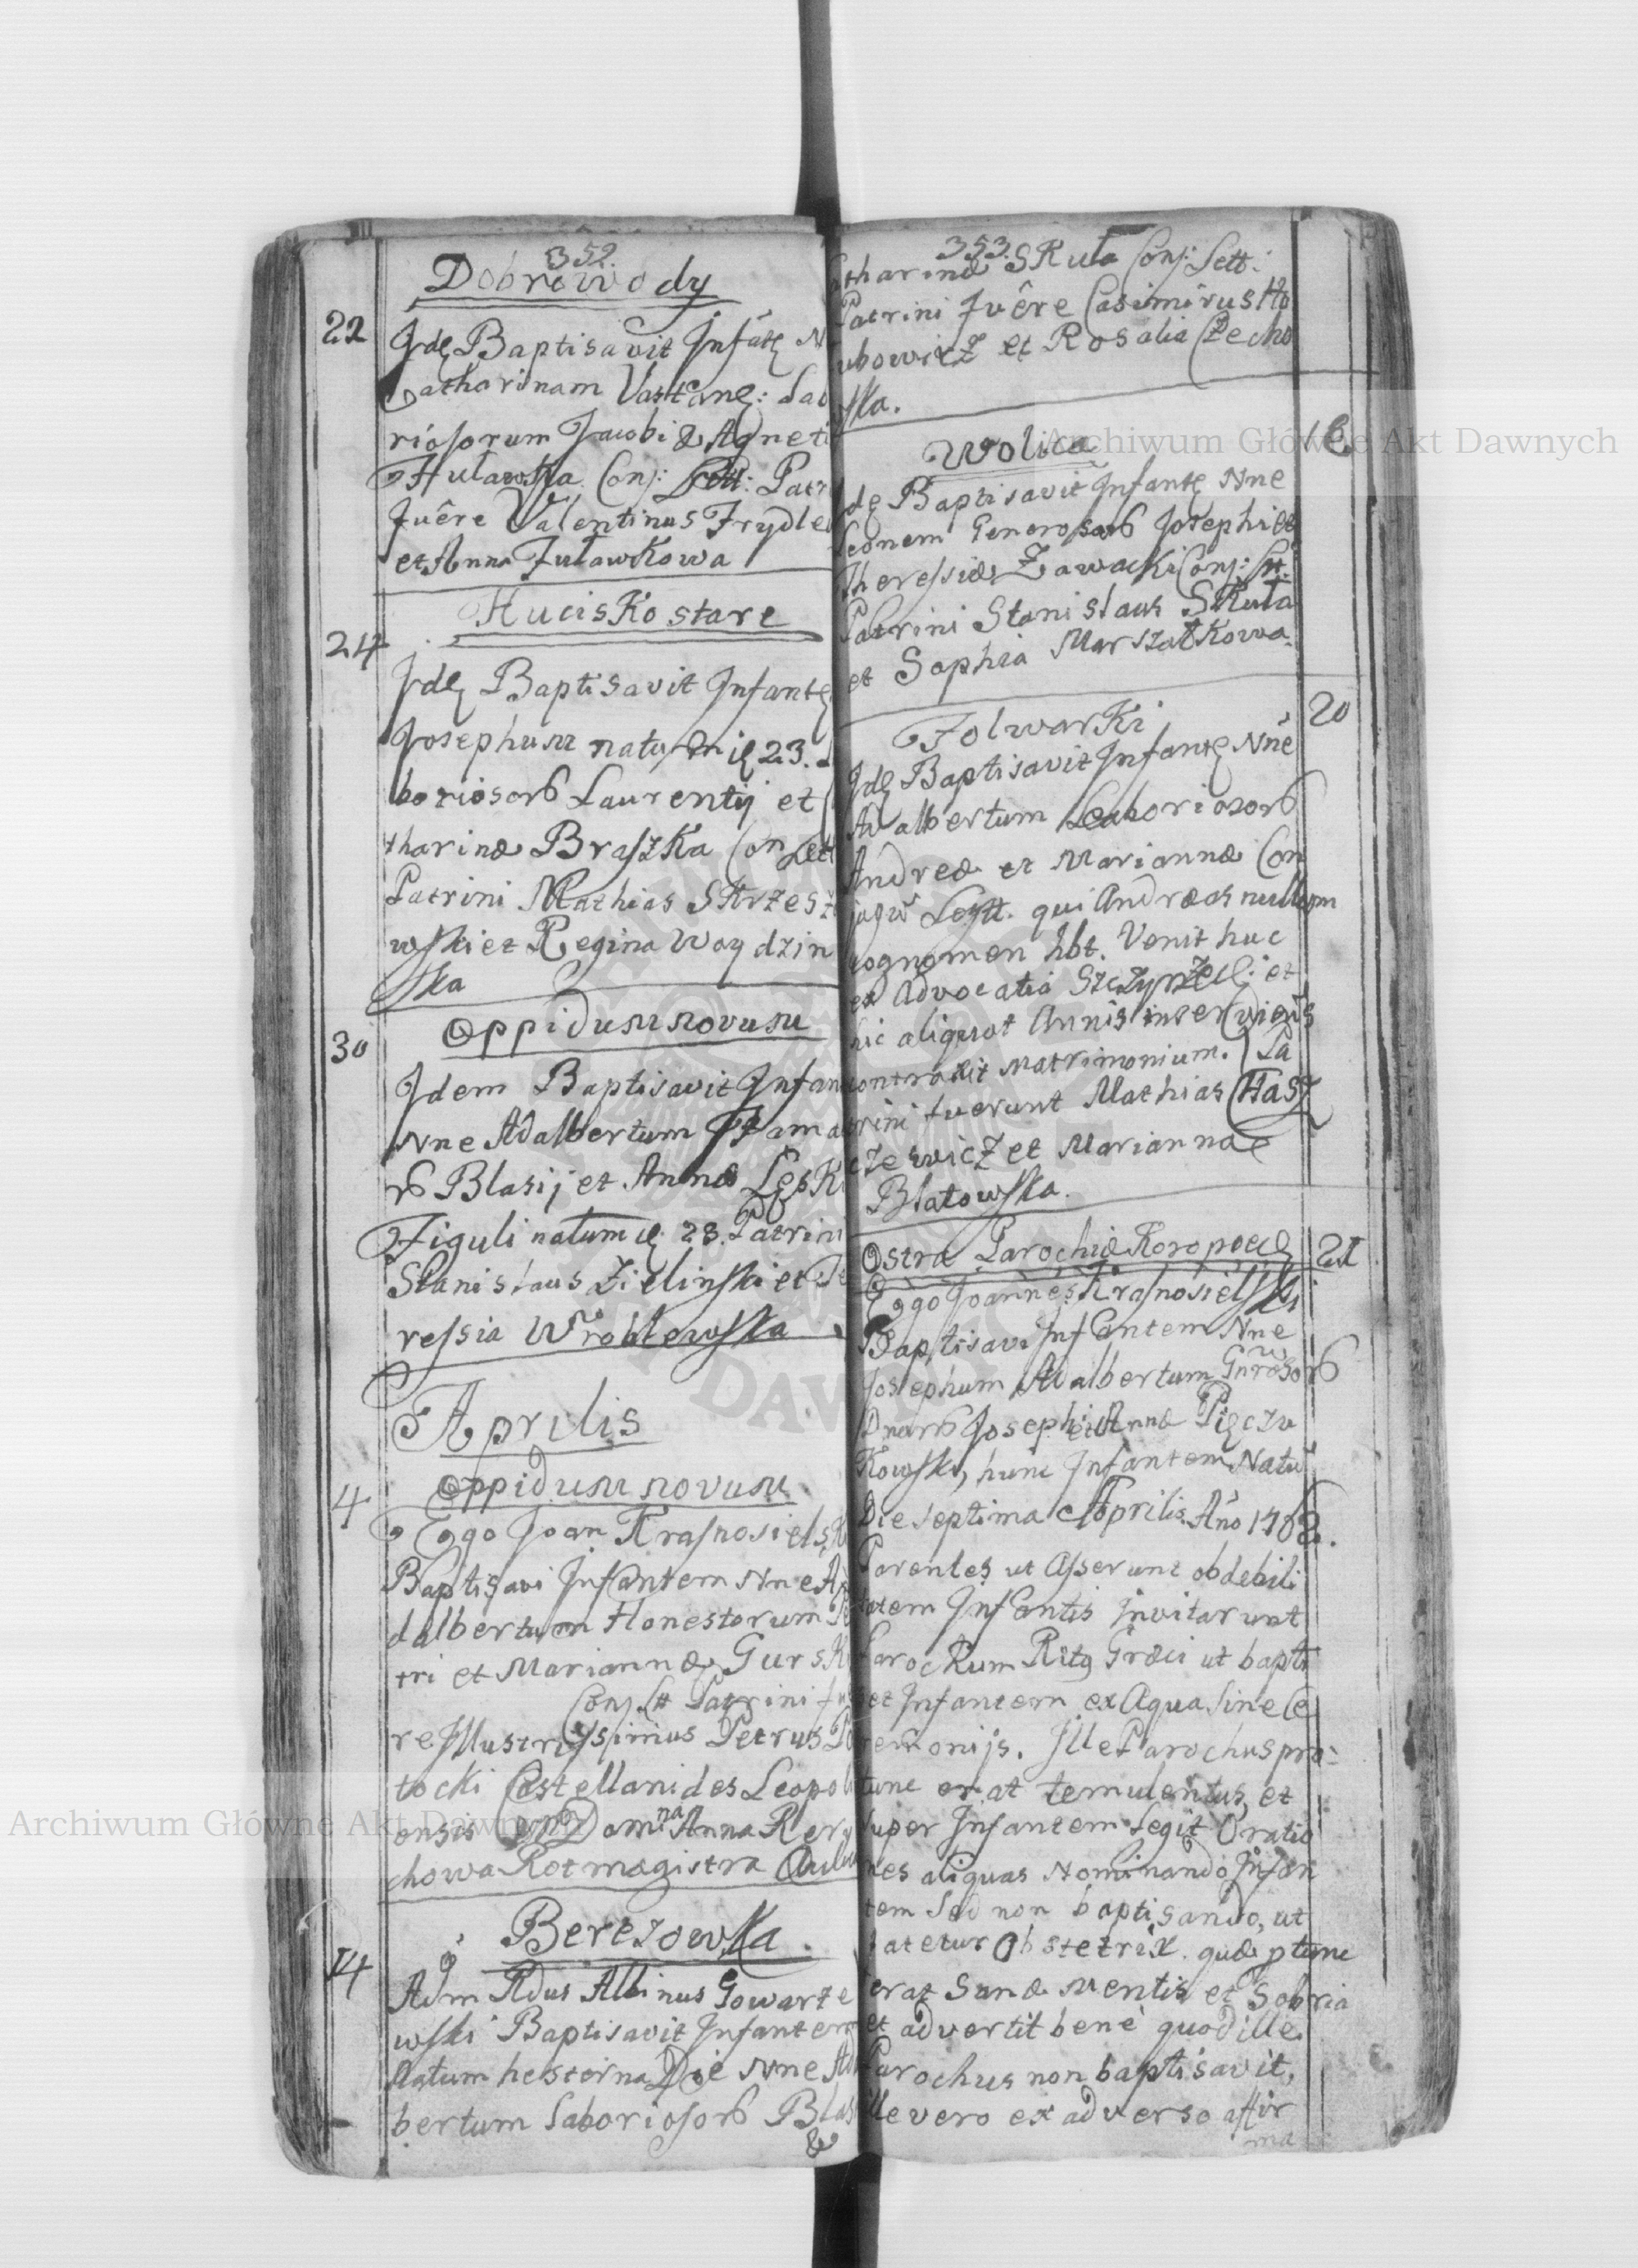 352.
Dobrowody
22
Jdę Baptisavit Jnfātę N
Catharinam Vastānę: Lab
riosorum Jacobi & Agneti
Huławska Conj: Lett: Patri
Fuêre Valentinus Frydle
et Anna Fuławkowa
Hucisko stare
24
Jdę Baptisavit Jnfantę
Josephum natum ię 23.
boriosorb Laurentij et
tharinæ Braszka Con Lett
Patrini Mathias Strzesz
wski et Regina Woydzin
ska
Oppidum novum
30
Jdem Baptisavit Jnfan
Nne Adalbertum Fama
rb Blasij et Annæ Lęski
Figuli natum ię 23. Patrini
Stanislaus Zielinski et Te
ressia Wroblewska
Aprilis
Oppidum novum
4
Ego Joan Krasnosielsk
Baptisavi Jnfantem Nne A
dalbertum Honestorum Pe
tri et Mariannæ Gursk
Conj Ltt Patrini fu
re Jllustrissimus Petrus Po
tocki Castellanides Leopoli
ensis Domna Anna Rery
chowa Rotmagistra
Berezowka.
14
Adm Rdus Albinus Gowarze
wski Baptisavit Jnfantem
Natum hesterna Die Nne Ad
bertum Laboriosorb Blas
&
353.
tharinæ Skuta Conj: Lett:
Patrini Fuêre Casimirus Ho
ubowicz et Rosalia Czecho
ska.
Wolica
18
dę Baptisavit Jnfantę Nne
Leonem Generosorb Josephi et
Theressiæ Zawacki Conj: Ltt.
Patrini Stanislaus Skuta
et Sophia Marszałkowa.
Folwarki
20
Jdę Baptisavit Jnfantę Nnē
Adalbertum Laboriosorb
Andreæ et Mariannæ Con
jugū Legtt. qui Andræas nullum
cognomen hbt. Venit huc
ex Advocatia et
hic aliquot Annis inserviens
contraxit Matrimonium. Pa
trini fuerunt Mathias Hasz
czewicz et Marianna
Blatowska.
Ostra Parochiæ Koropecę
21
Ego Joannes Krasnosielski
Baptisavi Jnfantem Nne
Josephum Adalbertum Gnrosorb
Dnorb Josephi et Annæ Pięczu
Kowski, hunc Jnfantem Natū
Die septima Aprilis Año 1768.
Parentes ut Asserunt ob debili
tatem Jnfantis invitarunt
Parochum Ritg Græci ut bapti
et Jnfantem ex Aqua sine Ce
remonijs. Jlle Parochus pro:
tunc erat temulentus, et
super Jnfantem Legit Oratio
nes aliquas Nominando Jnfan
tem sed non baptisando, ut
fatetur Obstetrix quæ ptunc
erat Sanæ Mentis et Sobria
et advertit bene quod ille
Parochus non baptisavit,
ille vero ex adverso affir
ma
Archiwum Główne Akt Dawnych
Archiwum Główne Akt Dawnych